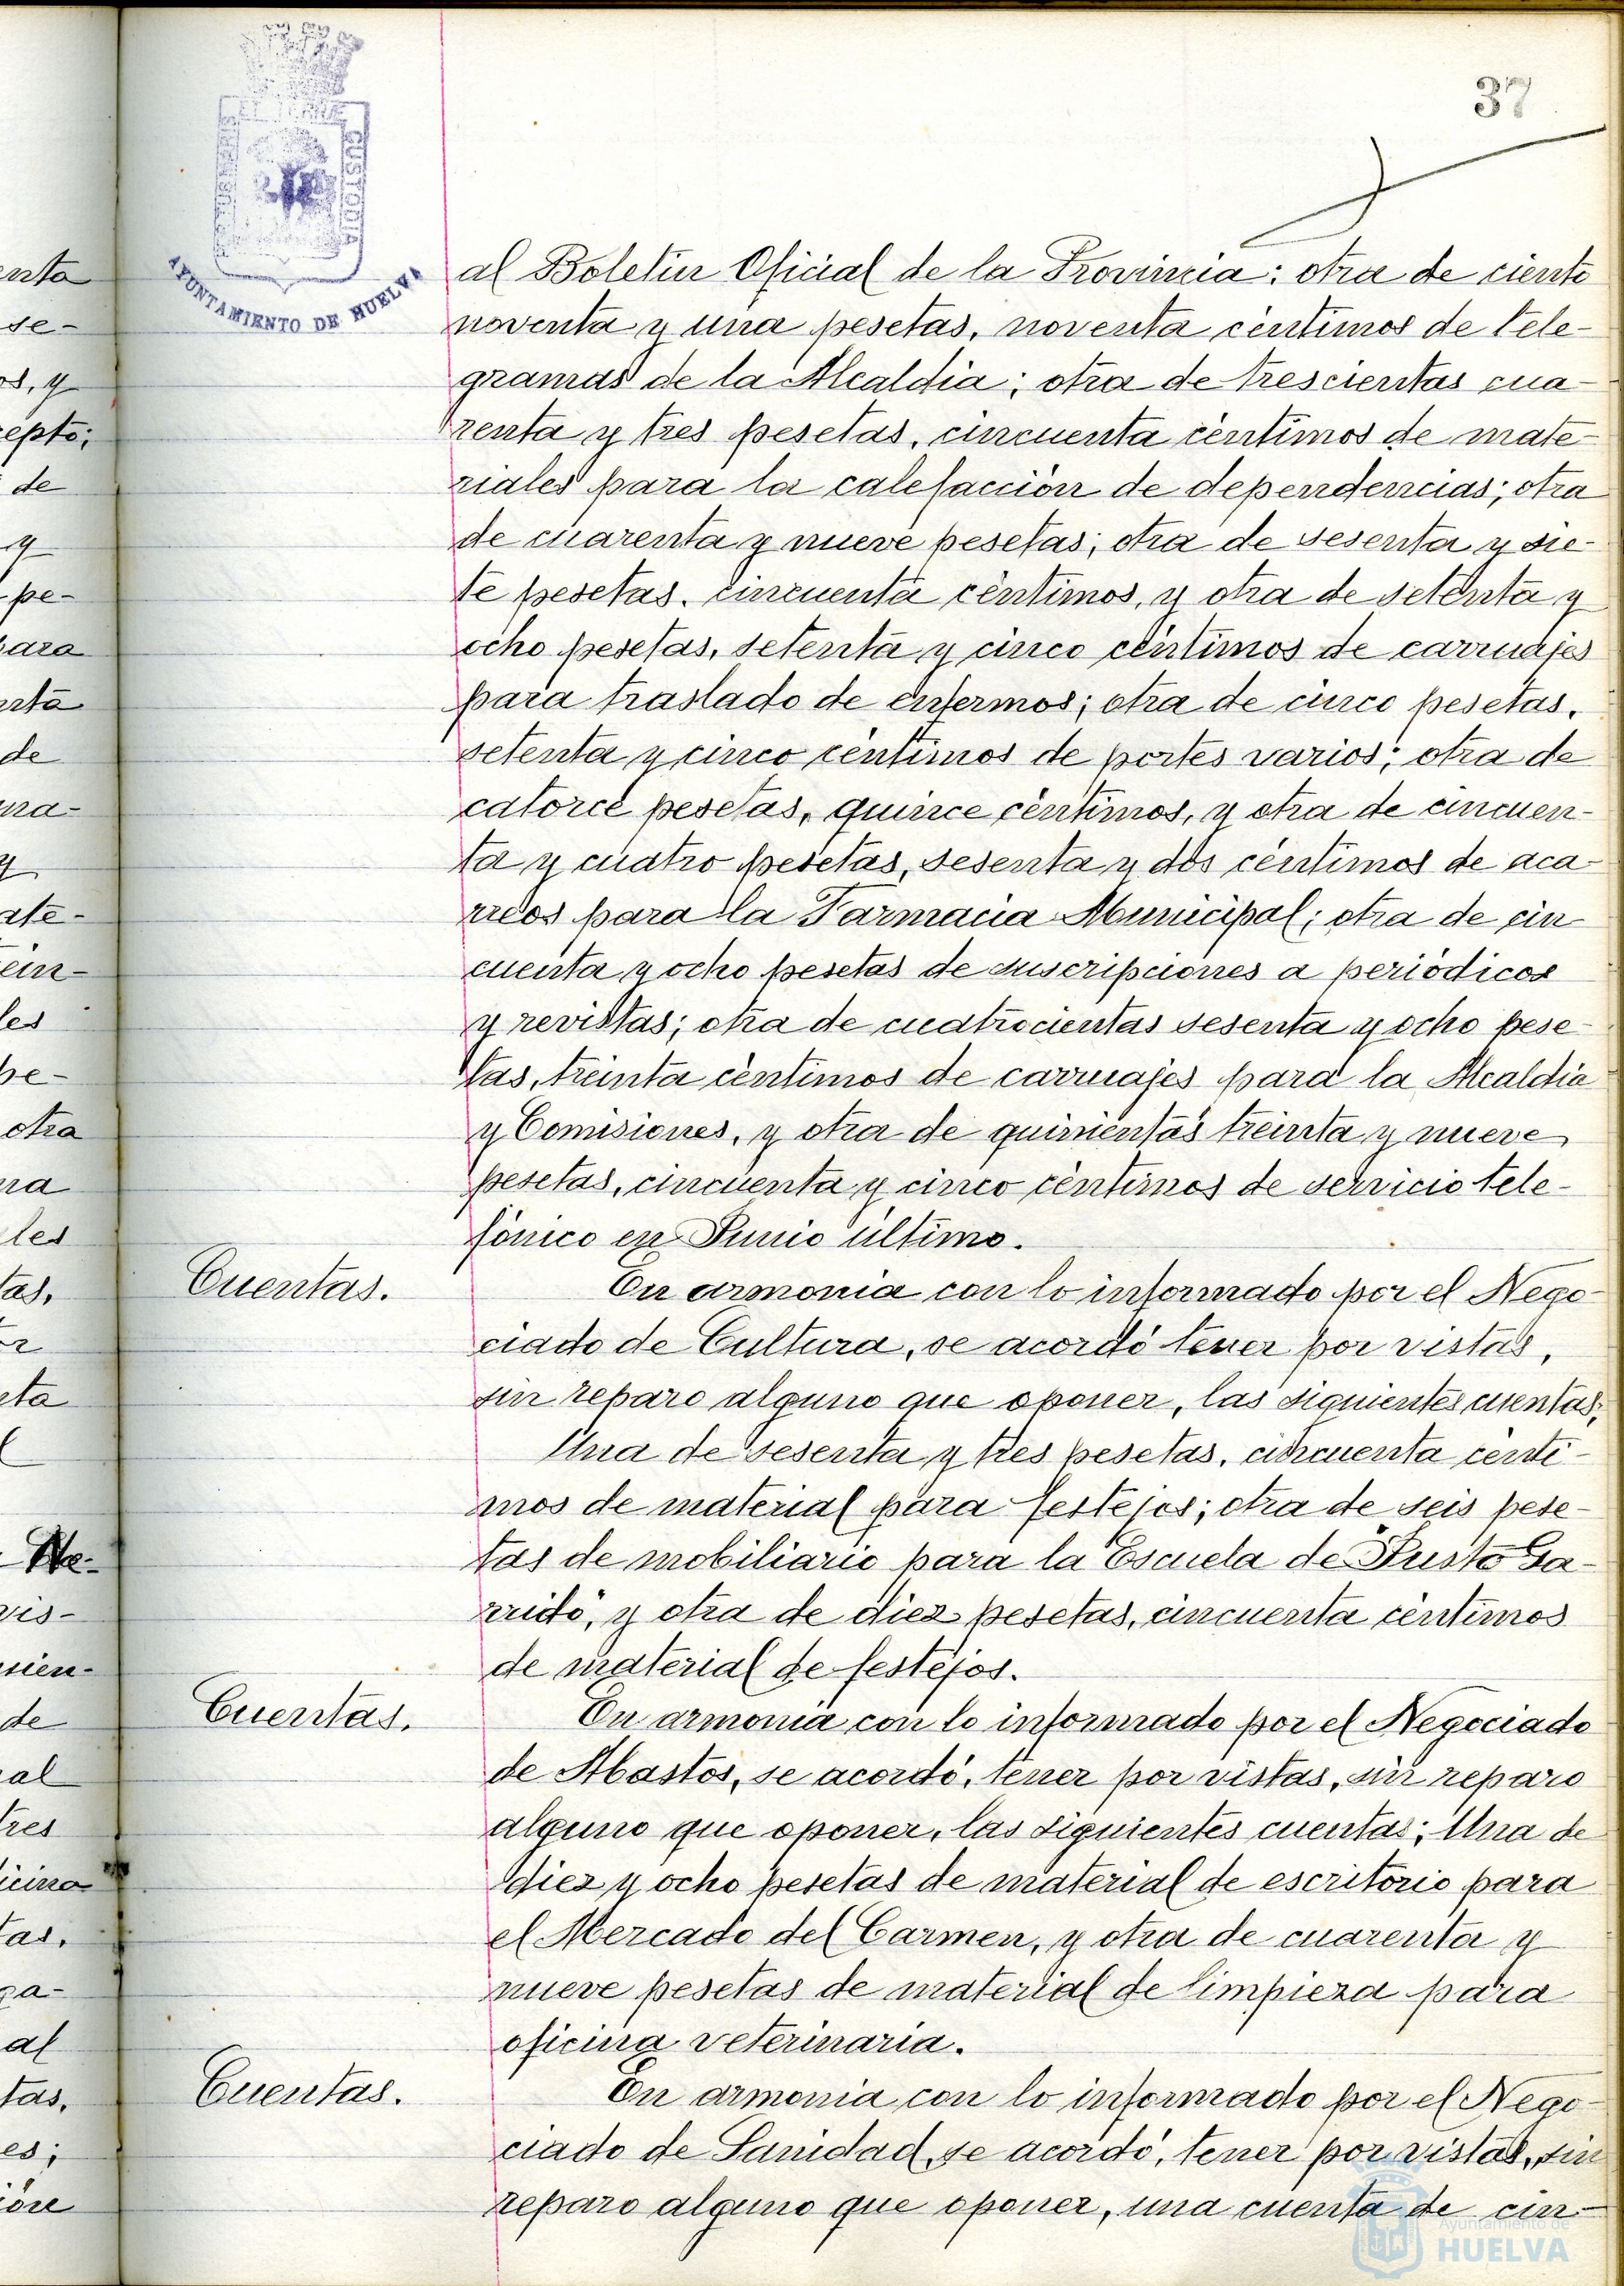 37
CUSTODIA
AYUNTAMIENTO DE HUELVA
al Boletin Oficial de la Provincia: otra de ciento
noventa y una pesetas, noventa céntimos de tele-
gramas de la Alcaldia; otra de trescientas cua-
renta y tres pesetas, cincuenta céntimos de mate-
riales para la calefacción de dependencias; otra
de cuarenta y nueve pesetas; otra de sesenta y sie-
te pesetas, cincuenta céntimos, y otra de setenta y
ocho pesetas, setenta y cinco céntimos de carruajes
para traslado de enfermos; otra de cinco pesetas,
setenta y cinco céntimos de portes varios; otra de
catorce pesetas, quince céntimos, y otra de cincuen-
ta y cuatro pesetas, sesenta y dos céntimos de aca-
rreos para la Farmacia Municipal; otra de cin
cuenta y ocho pesetas de suscripciones a periódicos
y revistas; otra de cuatrocientas sesenta y ocho pese-
tas, treinta céntimos de carruajes para la Alcaldia
y Comisiones, y otra de quinientas treinta y nueve
pesetas, cincuenta y cinco céntimos de servicio tele-
fónico en Junio último.
Cuentas.
En armonia con lo informado por el Nego-
ciado de Cultura, se acordó tener por vistas,
sin reparo alguno que oponer, las siguientes cuentas;
Una de sesenta y tres pesetas, cincuenta cénti-
mos de material para festejos; otra de seis pese-
tas de mobiliario para la Escuela de "Justo Ga-
rrido", y otra de diez pesetas, cincuenta céntimos
de material de festejos.
Cuentas.
En armonia con lo informado por el Negociado
de Abastos, se acordó, tener por vistas, sin reparo
alguno que oponer, las siguientes cuentas: Una de
diez y ocho pesetas de material de escritorio para
el Mercado del Carmen, y otra de cuarenta y
nueve pesetas de material de limpieza para
oficina veterinaria.
Cuentas.
En armonia con lo informado por el Nego-
ciado de Sanidad, se acordó, tener por vistas, sin
reparo alguno que oponer, una cuenta de cin-
Ayuntamiento de
HUELVA